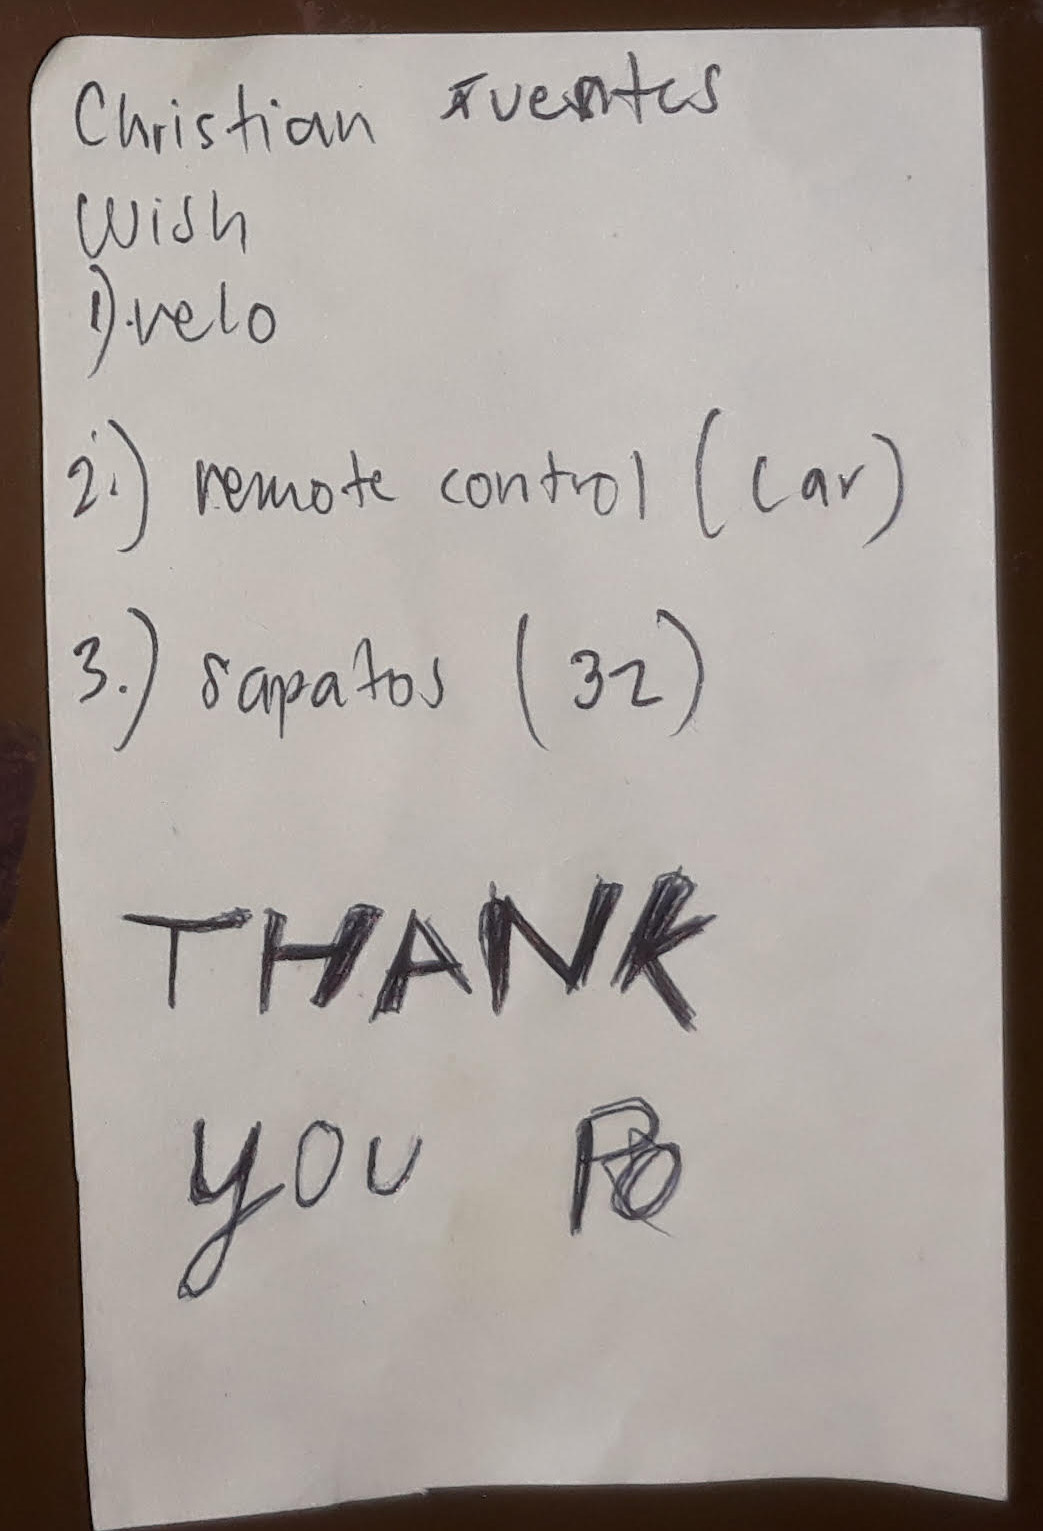 Christian Fuentes
Wish
1).velo
2.) remote control (car)
3.) sapatos (32)
THANK
you Po